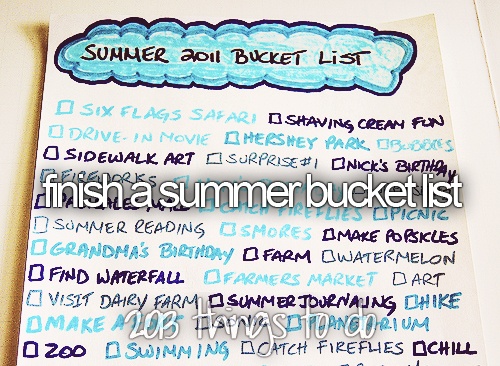 SUMMER 2011 BUCKET LIST
☐ SIX FLAGS SAFARI ☐ SHAVING CREAM FUN
☐ DRIVE-IN MOVIE ☐ HERSHEY PARK ☐ BUBBLES
☐ SIDEWALK ART ☐ SURPRISE #1 ☐ NICK'S BIRTHDAY
☐ FIREWORKS
finish a summer bucket list
CATCH FIREFLIES ☐ PICNIC
☐ SUMMER READING ☐ SMORES ☐ MAKE POPSICLES
☐ GRANDMA'S BIRTHDAY ☐ FARM ☐ WATERMELON
☐ FIND WATERFALL ☐ FARMERS MARKET ☐ ART
☐ VISIT DAIRY FARM ☐ SUMMER JOURNALING ☐ HIKE
☐ MAKE A
2013 things to do
☐ ZOO ☐ SWIMMING ☐ CATCH FIREFLIES ☐ CHILL